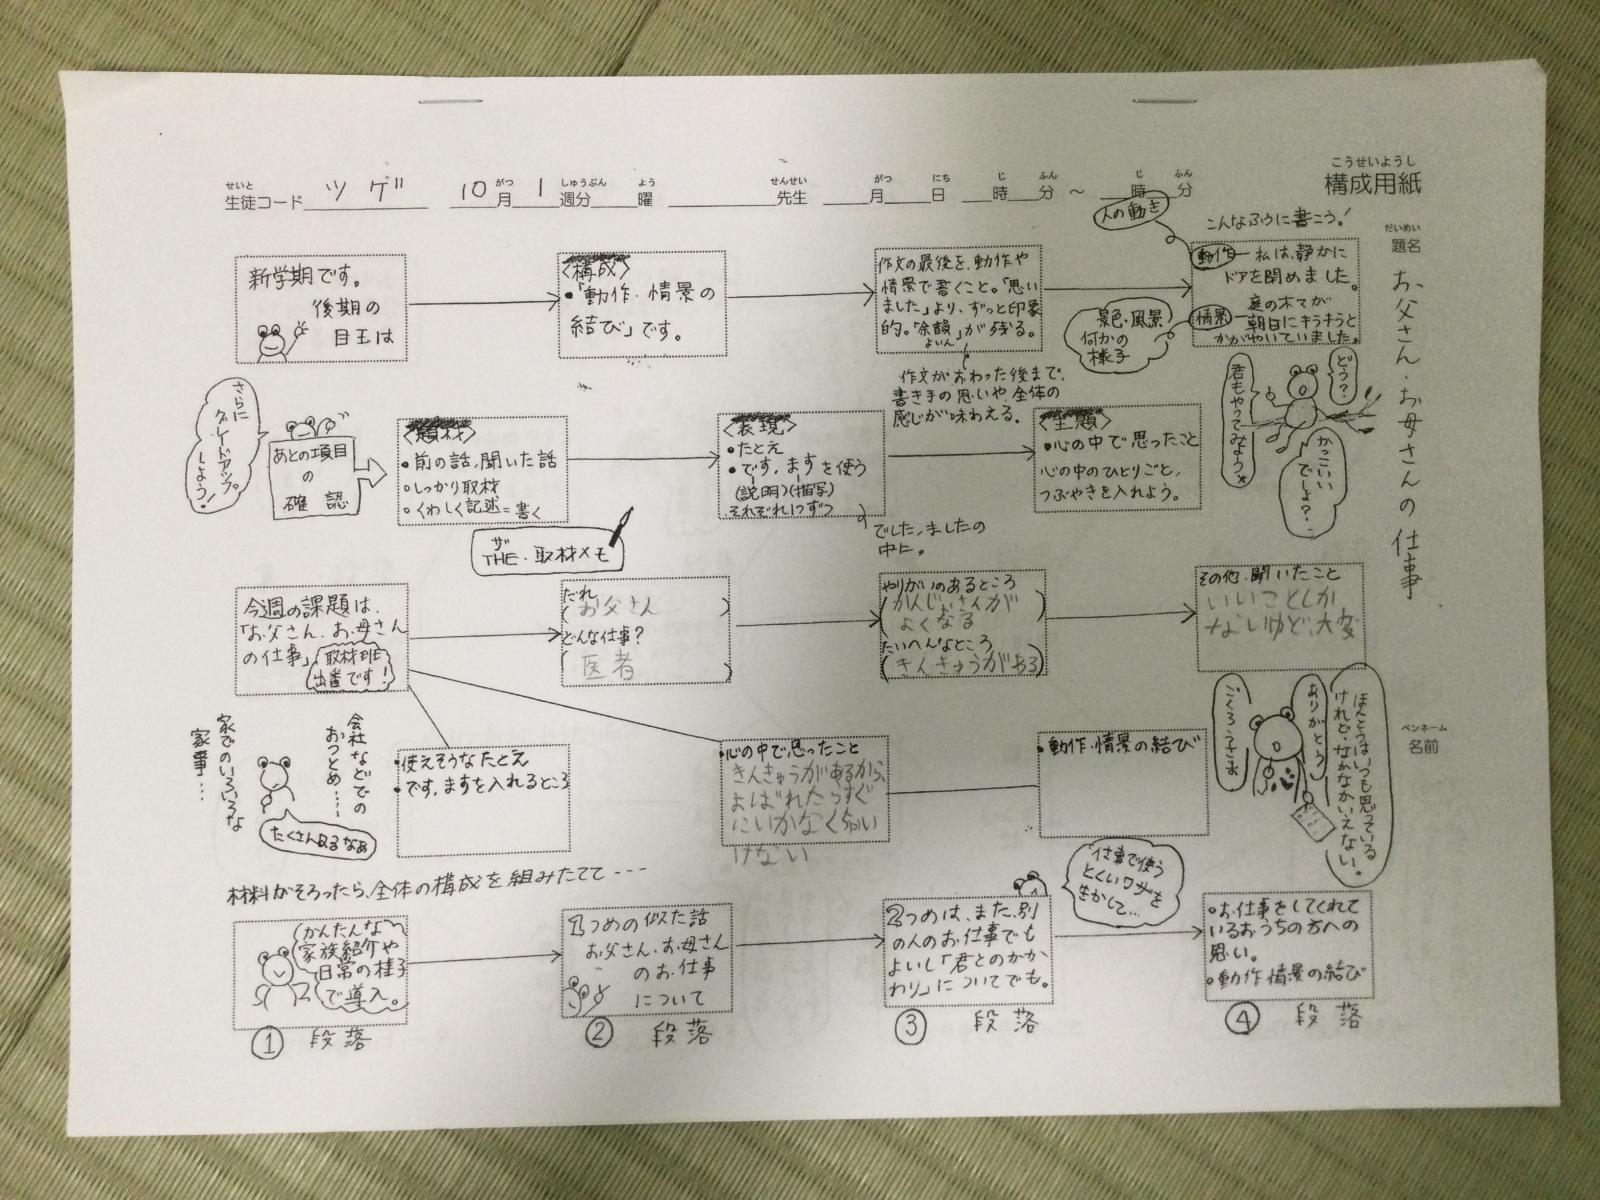 こうせいようし
構成用紙
せいと
生徒コード ツゲ 10月 1週分 曜 先生 月 日 時 分 ～ 時 分
がつ しゅうぶん よう せんせい がつ にち じ ふん じ ふん
だいめい
題名
お父さん・お母さんの仕事
ペンネーム
名前
新学期です。
後期の
目玉は
〈構成〉
・「動作・情景の
結び」です。
作文の最後を、動作や
情景で書くこと。「思い
ました」より、ずっと印象
的。「余韻」が残る。
よいん
作文がおわった後まで、
書き手の思いや全体の
感じが味わえる。
人の動き
こんなふうに書こう！
動作 ― 私は、静かに
ドアを閉めました。
情景 ― 庭の木々が
朝日にキラキラと
かがやいていました。
景色・風景
何かの
様子
どう？
君もやってみなよう
かっこいい
でしょ？…
さらに
グレードアップ
しよう！
あとの項目
の
確認
〈題材〉
・前の話、聞いた話
・しっかり取材
・くわしく記述＝書く
〈表現〉
・たとえ
・です、ますを使う
(説明)(描写)
それぞれ1つずつ
でした、ましたの
中に。
〈主題〉
・心の中で思ったこと
心の中のひとりごと、
つぶやきを入れよう。
ザ
THE・取材メモ
今週の課題は、
「お父さん、お母さん
の仕事」
取材班
出番です！
だれ
(お父さん)
どんな仕事？
(医者)
やりがいのあるところ
(かんじゃさんが
よくなる)
たいへんなところ
(きんきゅうがある)
その他、聞いたこと
いいことしか
ないけど、大変
会社などでの
おつとめ……
家でのいろいろな
家事…
たくさんあるなあ
・使えそうなたとえ
・です、ますを入れるところ
・心の中で思ったこと
きんきゅうがあるから、
よばれたらすぐ
にいかなくちゃい
けない
・動作・情景の結び
ほんとうはいつも思っている
けれど、なかなかいえない。
ありがとう
材料がそろったら、全体の構成を組みたてて---
かんたんな
家族紹介や
日常の様子
で導入。
① 段落
1つめの似た話
お父さん、お母さん
のお仕事
について
② 段落
2つめは、また、別
の人のお仕事でも
よいし「君とのかか
わり」についてでも。
③ 段落
仕事で使う
とくいワザを
生かして…
・お仕事をしてくれて
いるおうちの方への
思い。
・動作、情景の結び
④ 段落